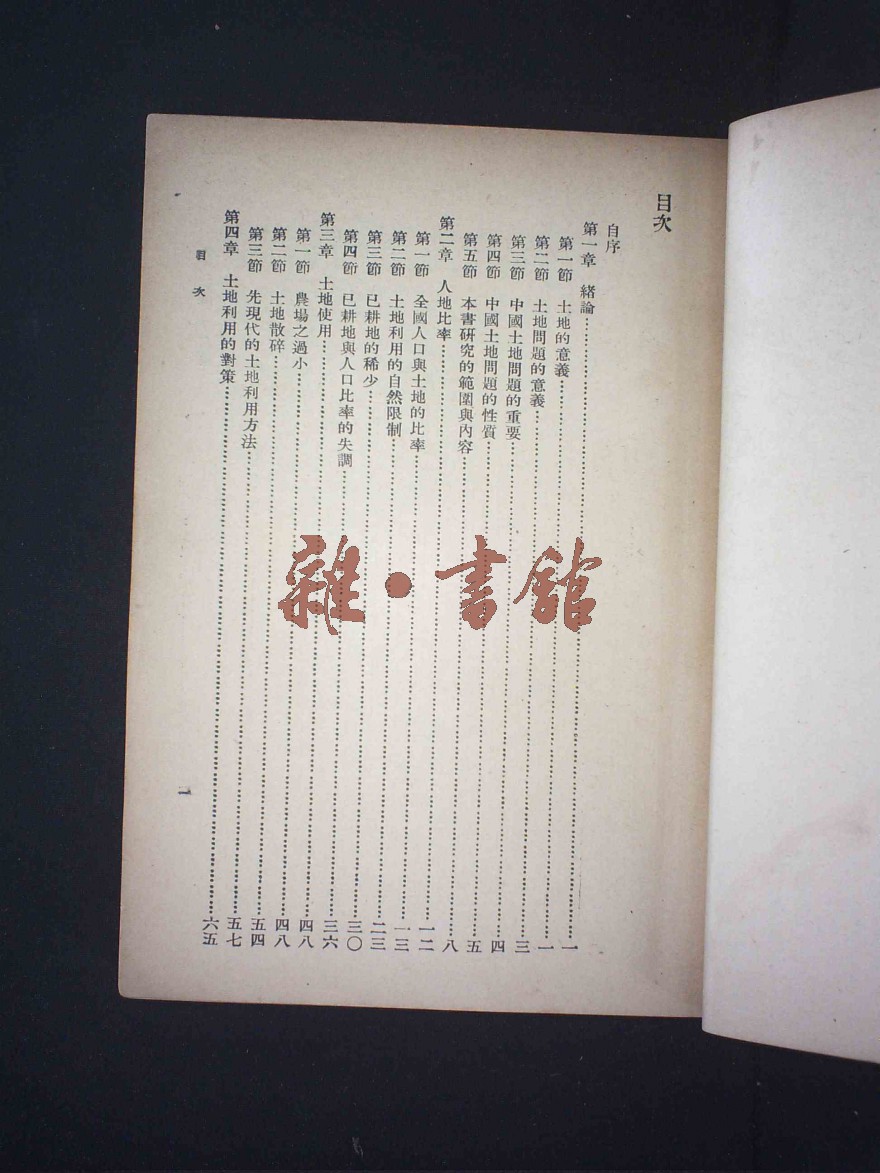 目次
自序
第一章 緒論……一
第一節 土地的意義……一
第二節 土地問題的意義……三
第三節 中國土地問題的重要……四
第四節 中國土地問題的性質……五
第五節 本書研究的範圍與內容……八
第二章 人地比率……一二
第一節 全國人口與土地的比率……一三
第二節 土地利用的自然限制……二三
第三節 已耕地的稀少……三〇
第四節 已耕地與人口比率的失調……三六
第三章 土地使用……四八
第一節 農場之過小……四八
第二節 土地散碎……五四
第三節 先現代的土地利用方法……五七
第四章 土地利用的對策……六五
目次
一
雜·書館